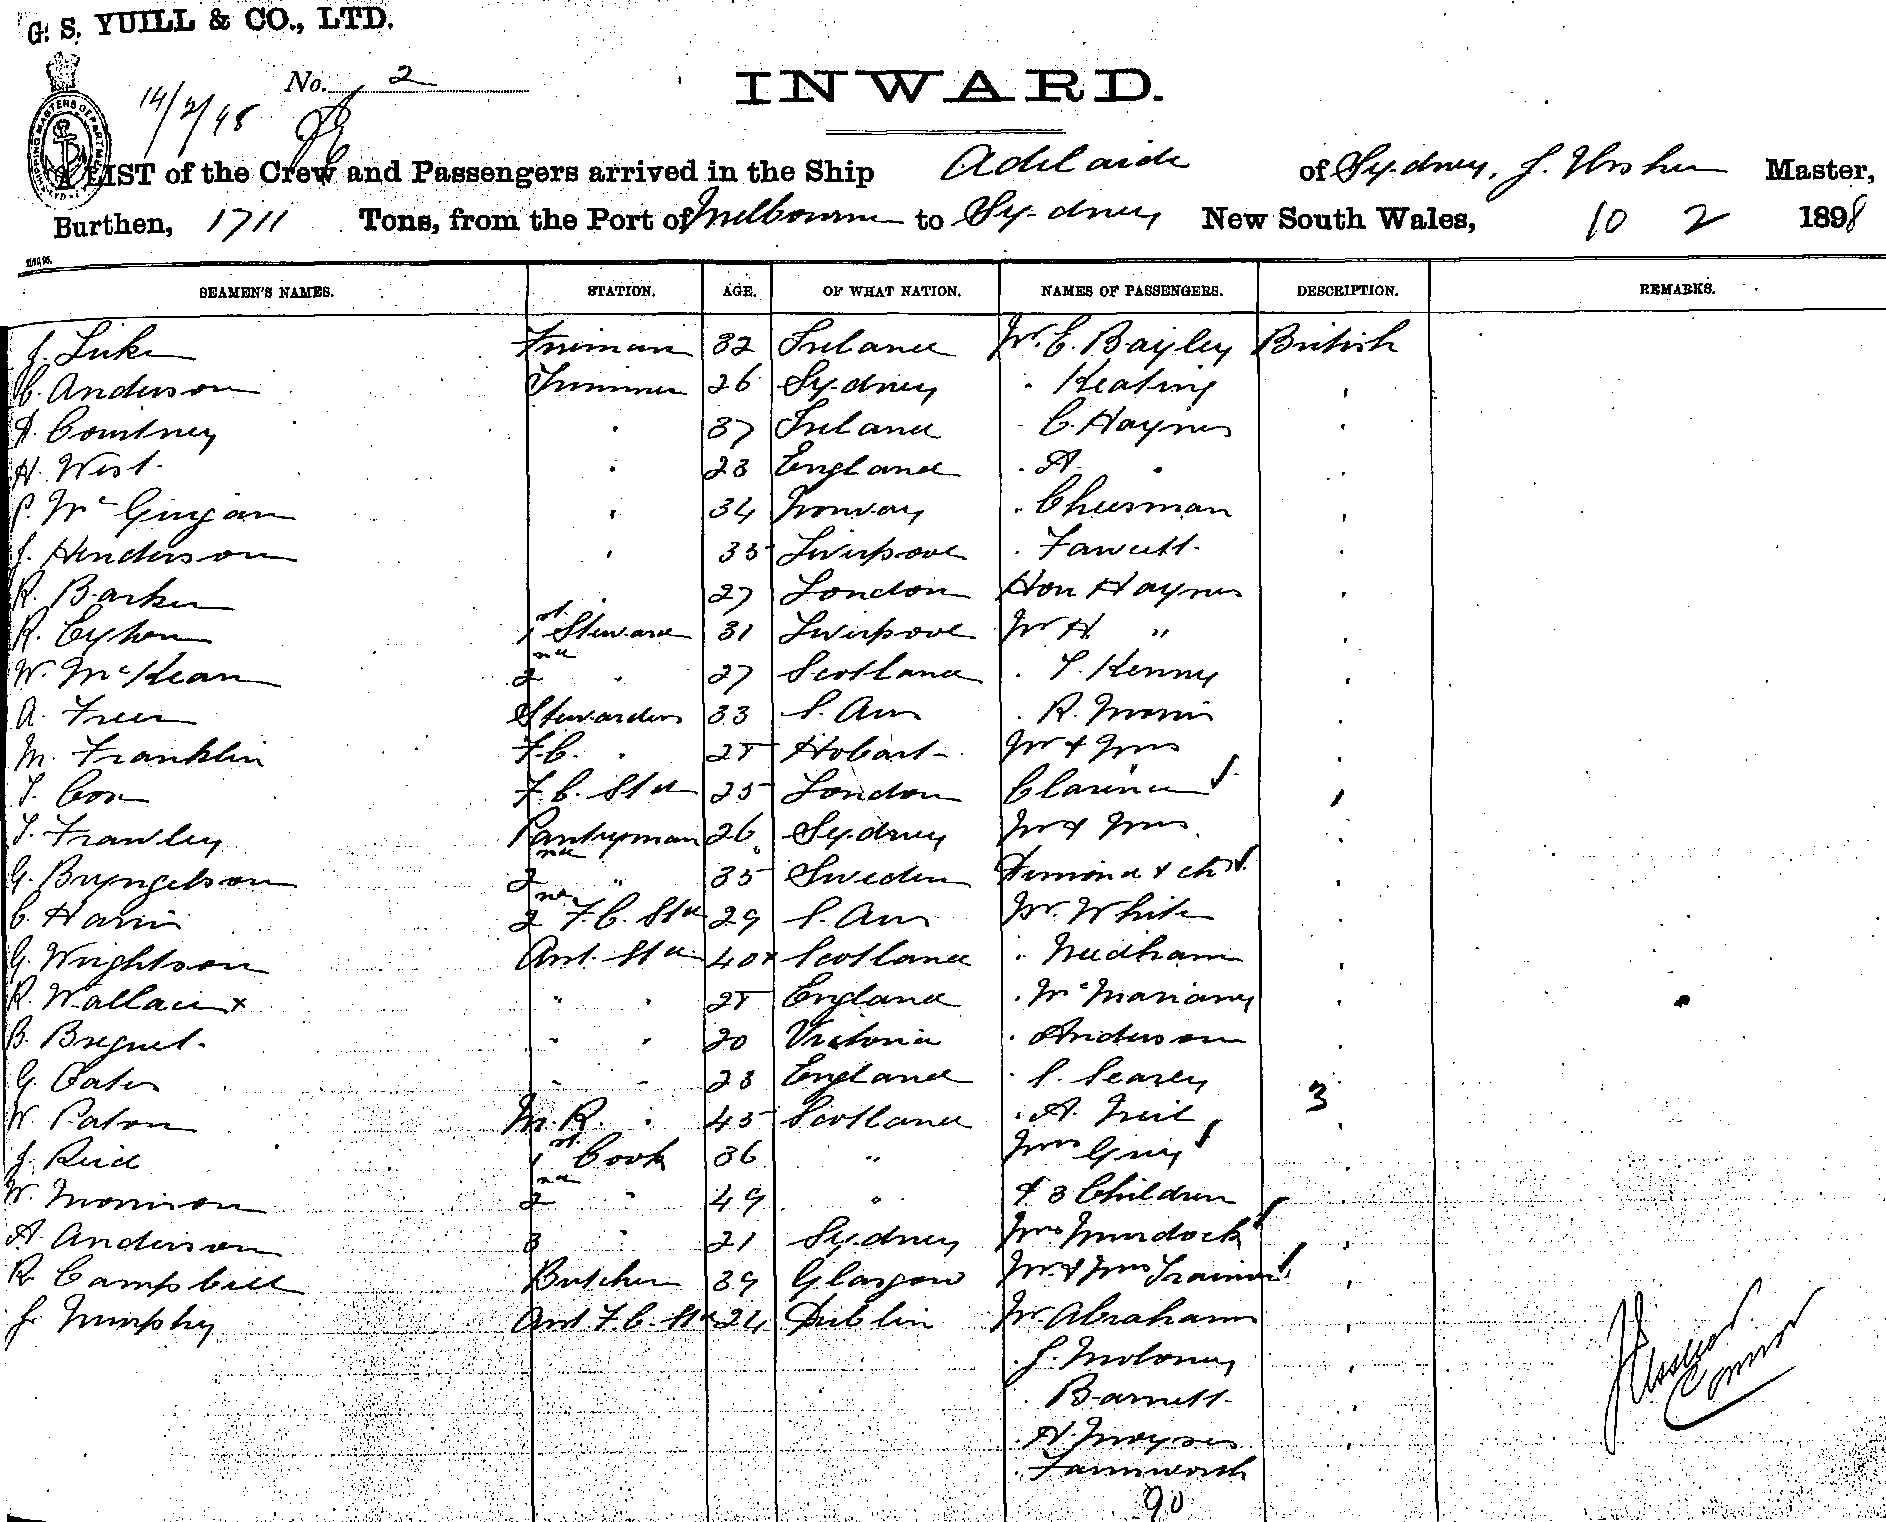 G. S. YUILL & CO., LTD.
No. 2
14/2/98
INWARD.
A LIST of the Crew and Passengers arrived in the Ship Adelaide of Sydney, J. Ussher Master,
Burthen, 1711 Tons, from the Port of Melbourne to Sydney New South Wales, 10 2 1898
SEAMEN'S NAMES. STATION. AGE. OF WHAT NATION. NAMES OF PASSENGERS. DESCRIPTION. REMARKS.
J. Luke Fireman 32 Ireland Mr. C. Bayley British
C. Anderson Trimmer 26 Sydney " Keating "
A. Courtney " 37 Ireland " C. Haynes "
H. West " 23 England " A. " "
P. McGuigan " 34 Norway " Cheesman "
J. Henderson " 35 Liverpool " Fawcett "
R. Barker " 27 London Hon Haynes "
R. 1st Steward 31 Liverpool Mr H " "
W. McKean 2nd " 27 Scotland " T. Kenny "
A. Freer Stewardess 33 S. Aus " R. Morris "
M. Franklin F.C. " 28 Hobart Mr & Mrs "
T. Cox F.C. Std 25 London Clarence "
T. Frawley Pantryman 26 Sydney Mr & Mrs "
G. Bryngelson 2nd " 35 Sweden & ch "
C. Harris 2nd F.C. Std 29 S. Aus Mr. White "
G. Wrightson Asst. Std 40 x Scotland " Needham "
R. Wallace x " " 28 England " "
B. " " 20 Victoria " Anderson "
G. Oates " " 23 England " S. Searey 3
W. Paton M. R. " 45 Scotland " A. Neil "
J. Reid 1st Cook 36 " Mrs Guy "
W. Morrison 2nd " 49 " & 3 Children "
A Anderson 3 " 21 Sydney Mrs Murdock "
R Campbell Butcher 39 Glasgow Mr. & Mrs Trainor "
J. Murphy Asst F.C. Std 24 Dublin Mr. Abrahams "
" J. Moloney "
" Barnett "
" H. Moyses "
" Farnworth
90